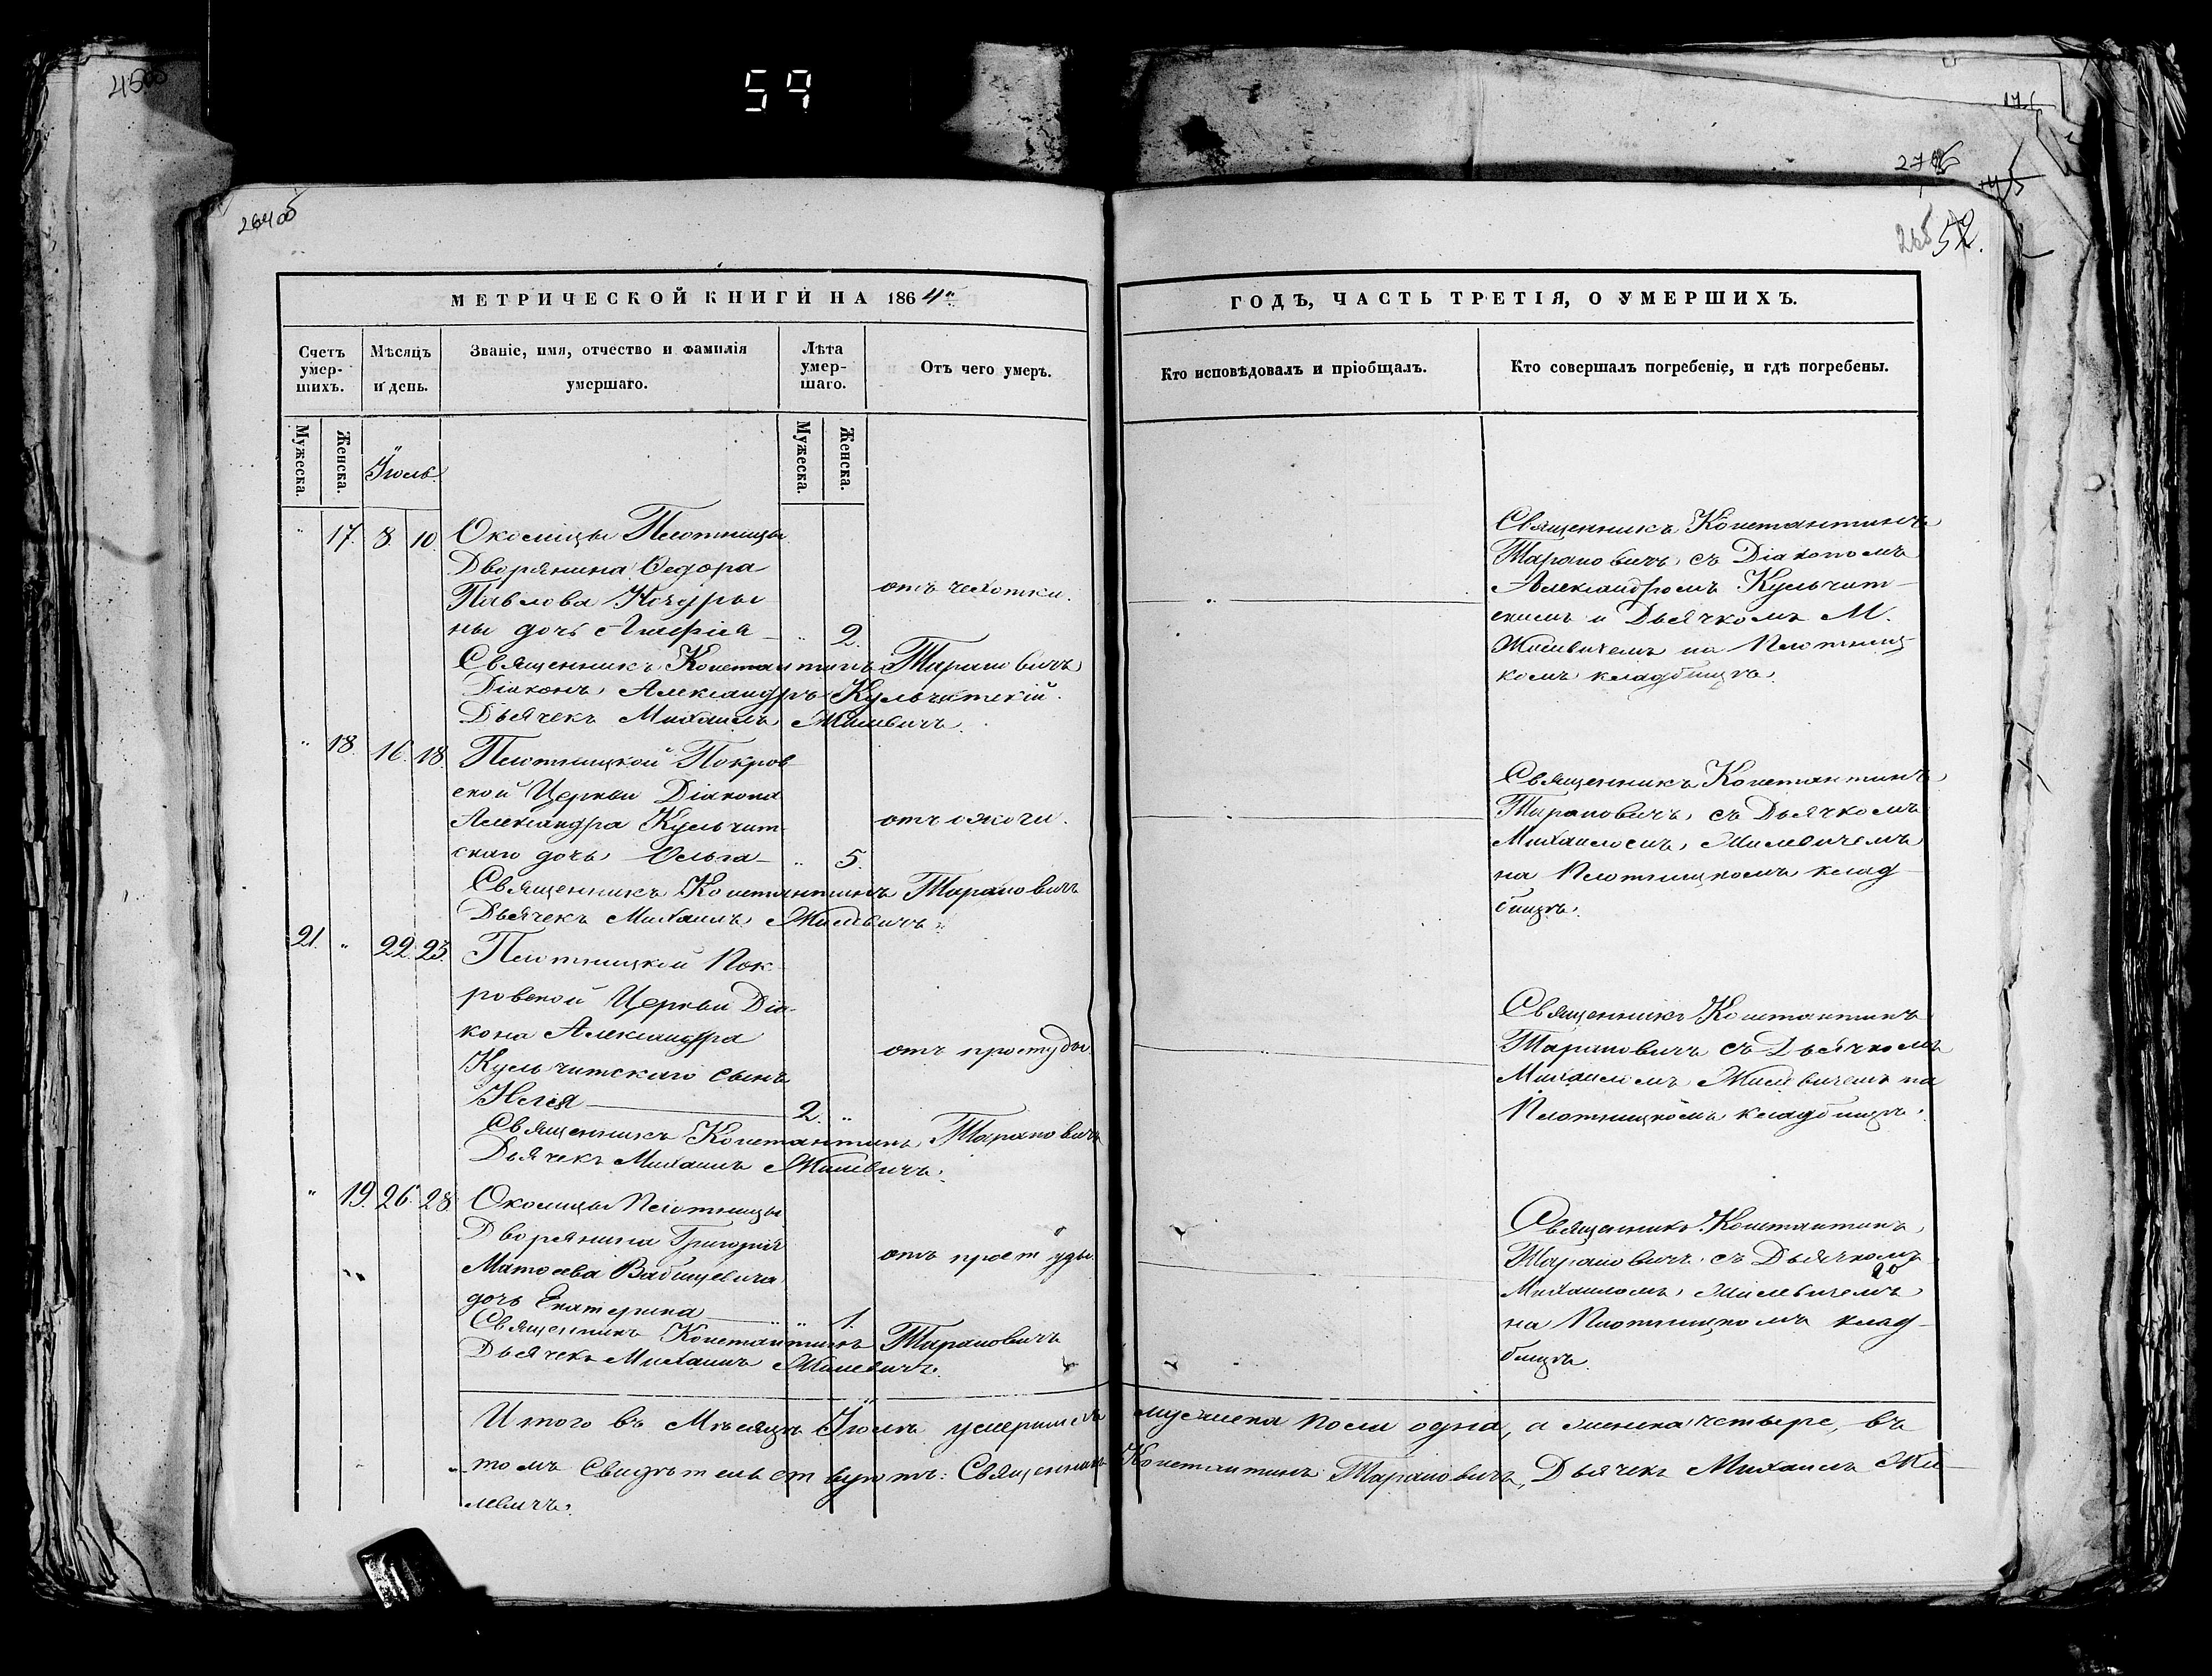 59
45об
264об
276
265
52.
МЕТРИЧЕСКОЙ КНИГИ НА 1864
ГОДЪ, ЧАСТЬ ТРЕТІЯ, О УМЕРШИХЪ.
Счетъ умер-шихъ.
Мѣсяцъ и день.
Званіе, имя, отчество и фамилія
умершаго.
Лѣта умер-шаго.
Отъ чего умеръ.
Кто исповѣдовалъ и пріобщалъ.
Кто совершалъ погребеніе, и гдѣ погребены.
Мужеска.
Женска.
Іюль.
Мужеска.
Женска.
" 17. 8. 10. Околицы Плотницы
Дворянина Ѳедора
Павлова
ны дочь " 2.
отъ чехотки.
Священникъ Константинъ Тарановичъ
Діаконъ Александръ Кульчитскій.
Дьячекъ Михаилъ Жилевичъ.
Священникъ Константинъ
Тарановичъ съ Діакономъ
Александромъ Кульчит-
скимъ и Дьячкомъ М.
Жилевичемъ на Плотниц-
комъ кладбищѣ.
" 18. 16. 18. Плотницкой Покров-
ской Церкви Діакона
Александра Кульчит-
скаго дочь Ольга " 5.
отъ ожоги.
Священникъ Константинъ Тарановичъ
Дьячекъ Михаилъ Жилевичъ.
Священникъ Константинъ
Тарановичъ съ Дьячкомъ
Михаиломъ Жилевичемъ
на Плотницкомъ клад-
бищѣ.
21. " 22. 23. Плотницкой Пок-
ровской Церкви Діа-
кона Александра
Кульчитскаго сынъ
Илія 2. "
отъ простуды
Священникъ Константинъ Тарановичъ
Дьячекъ Михаилъ Жилевичъ.
Священникъ Константинъ
Тарановичъ съ Дьячкомъ
Михаиломъ Жилевичемъ на
Плотницкомъ кладбищѣ.
" 19. 26. 28. Околицы Плотницы
Дворянина Григорія
Матѳева Вабищевича
дочь Екатерина " 1.
отъ простуды.
Священникъ Константинъ Тарановичъ
Дьячекъ Михаилъ Жилевичъ.
Священникъ Константинъ
Тарановичъ съ Дьячкомъ
Михаиломъ Жилевичемъ
на Плотницкомъ клад-
бищѣ.
Итого въ Мѣсяцѣ Іюлѣ умершихъ мужеска пола одна, а женска четыре, въ
томъ Свидѣтельствуютъ: Священникъ Константинъ Тарановичъ, Дьячекъ Михаилъ Жи-
левичъ.